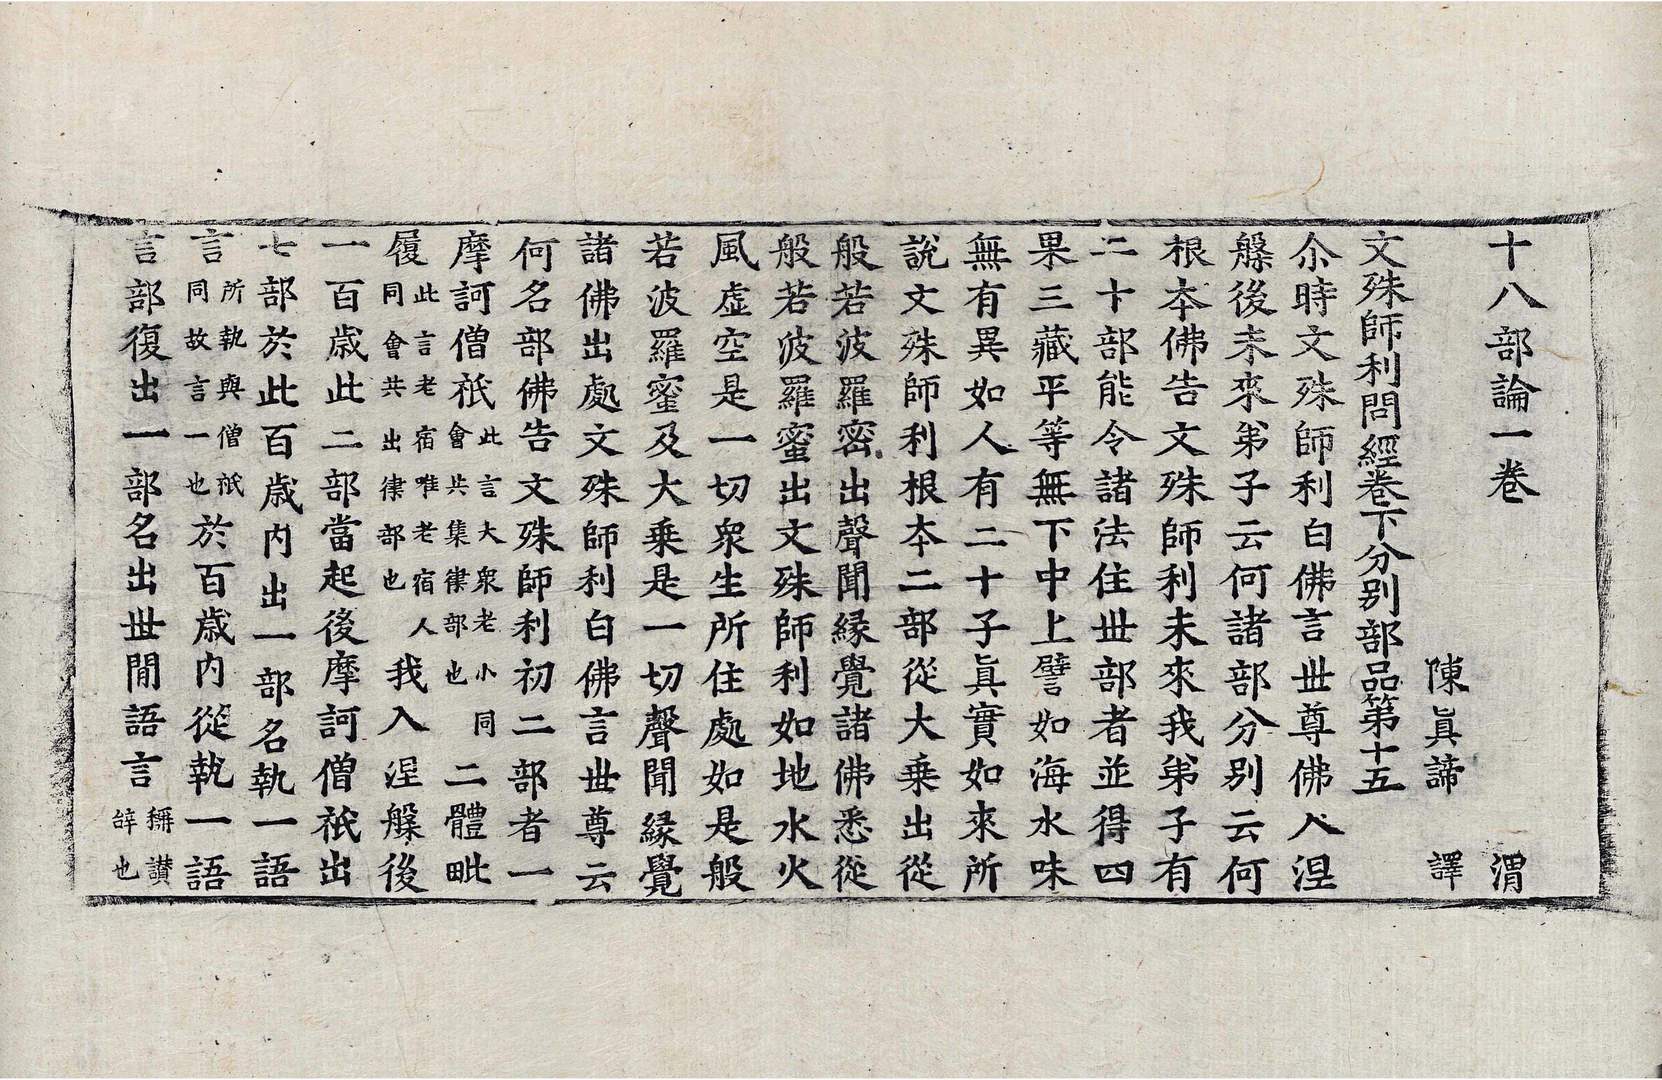 十八部論一卷 渭
陳眞諦 譯
文殊師利問經卷下分别部品第十五
尒時文殊師利白佛言丗尊佛入涅
槃後未來弟子云何諸部分别云何
根本佛告文殊師利未來我弟子有
二十部能令諸法住丗部者並得四
果三藏平等無下中上譬如海水味
無有異如人有二十子眞實如來所
說文殊師利根本二部從大乗出從
般若波羅密出聲聞縁覺諸佛悉從
般若波羅蜜出文殊師利如地水火
風虚空是一切衆生所住處如是般
若波羅蜜及大乗是一切聲聞縁覺
諸佛出處文殊師利白佛言丗尊云
何名部佛告文殊師利初二部者一
摩訶僧祇此言大衆老小同會共集律部也二體毗
履此言老宿唯老宿人同會共出律部也我入涅槃後
一百歳此二部當起後摩訶僧祇出
七部於此百歳内出一部名執一語
言所執與僧祇同故言一也於百歳内從執一語
言部復出一部名出丗閒語言稱讃辝也